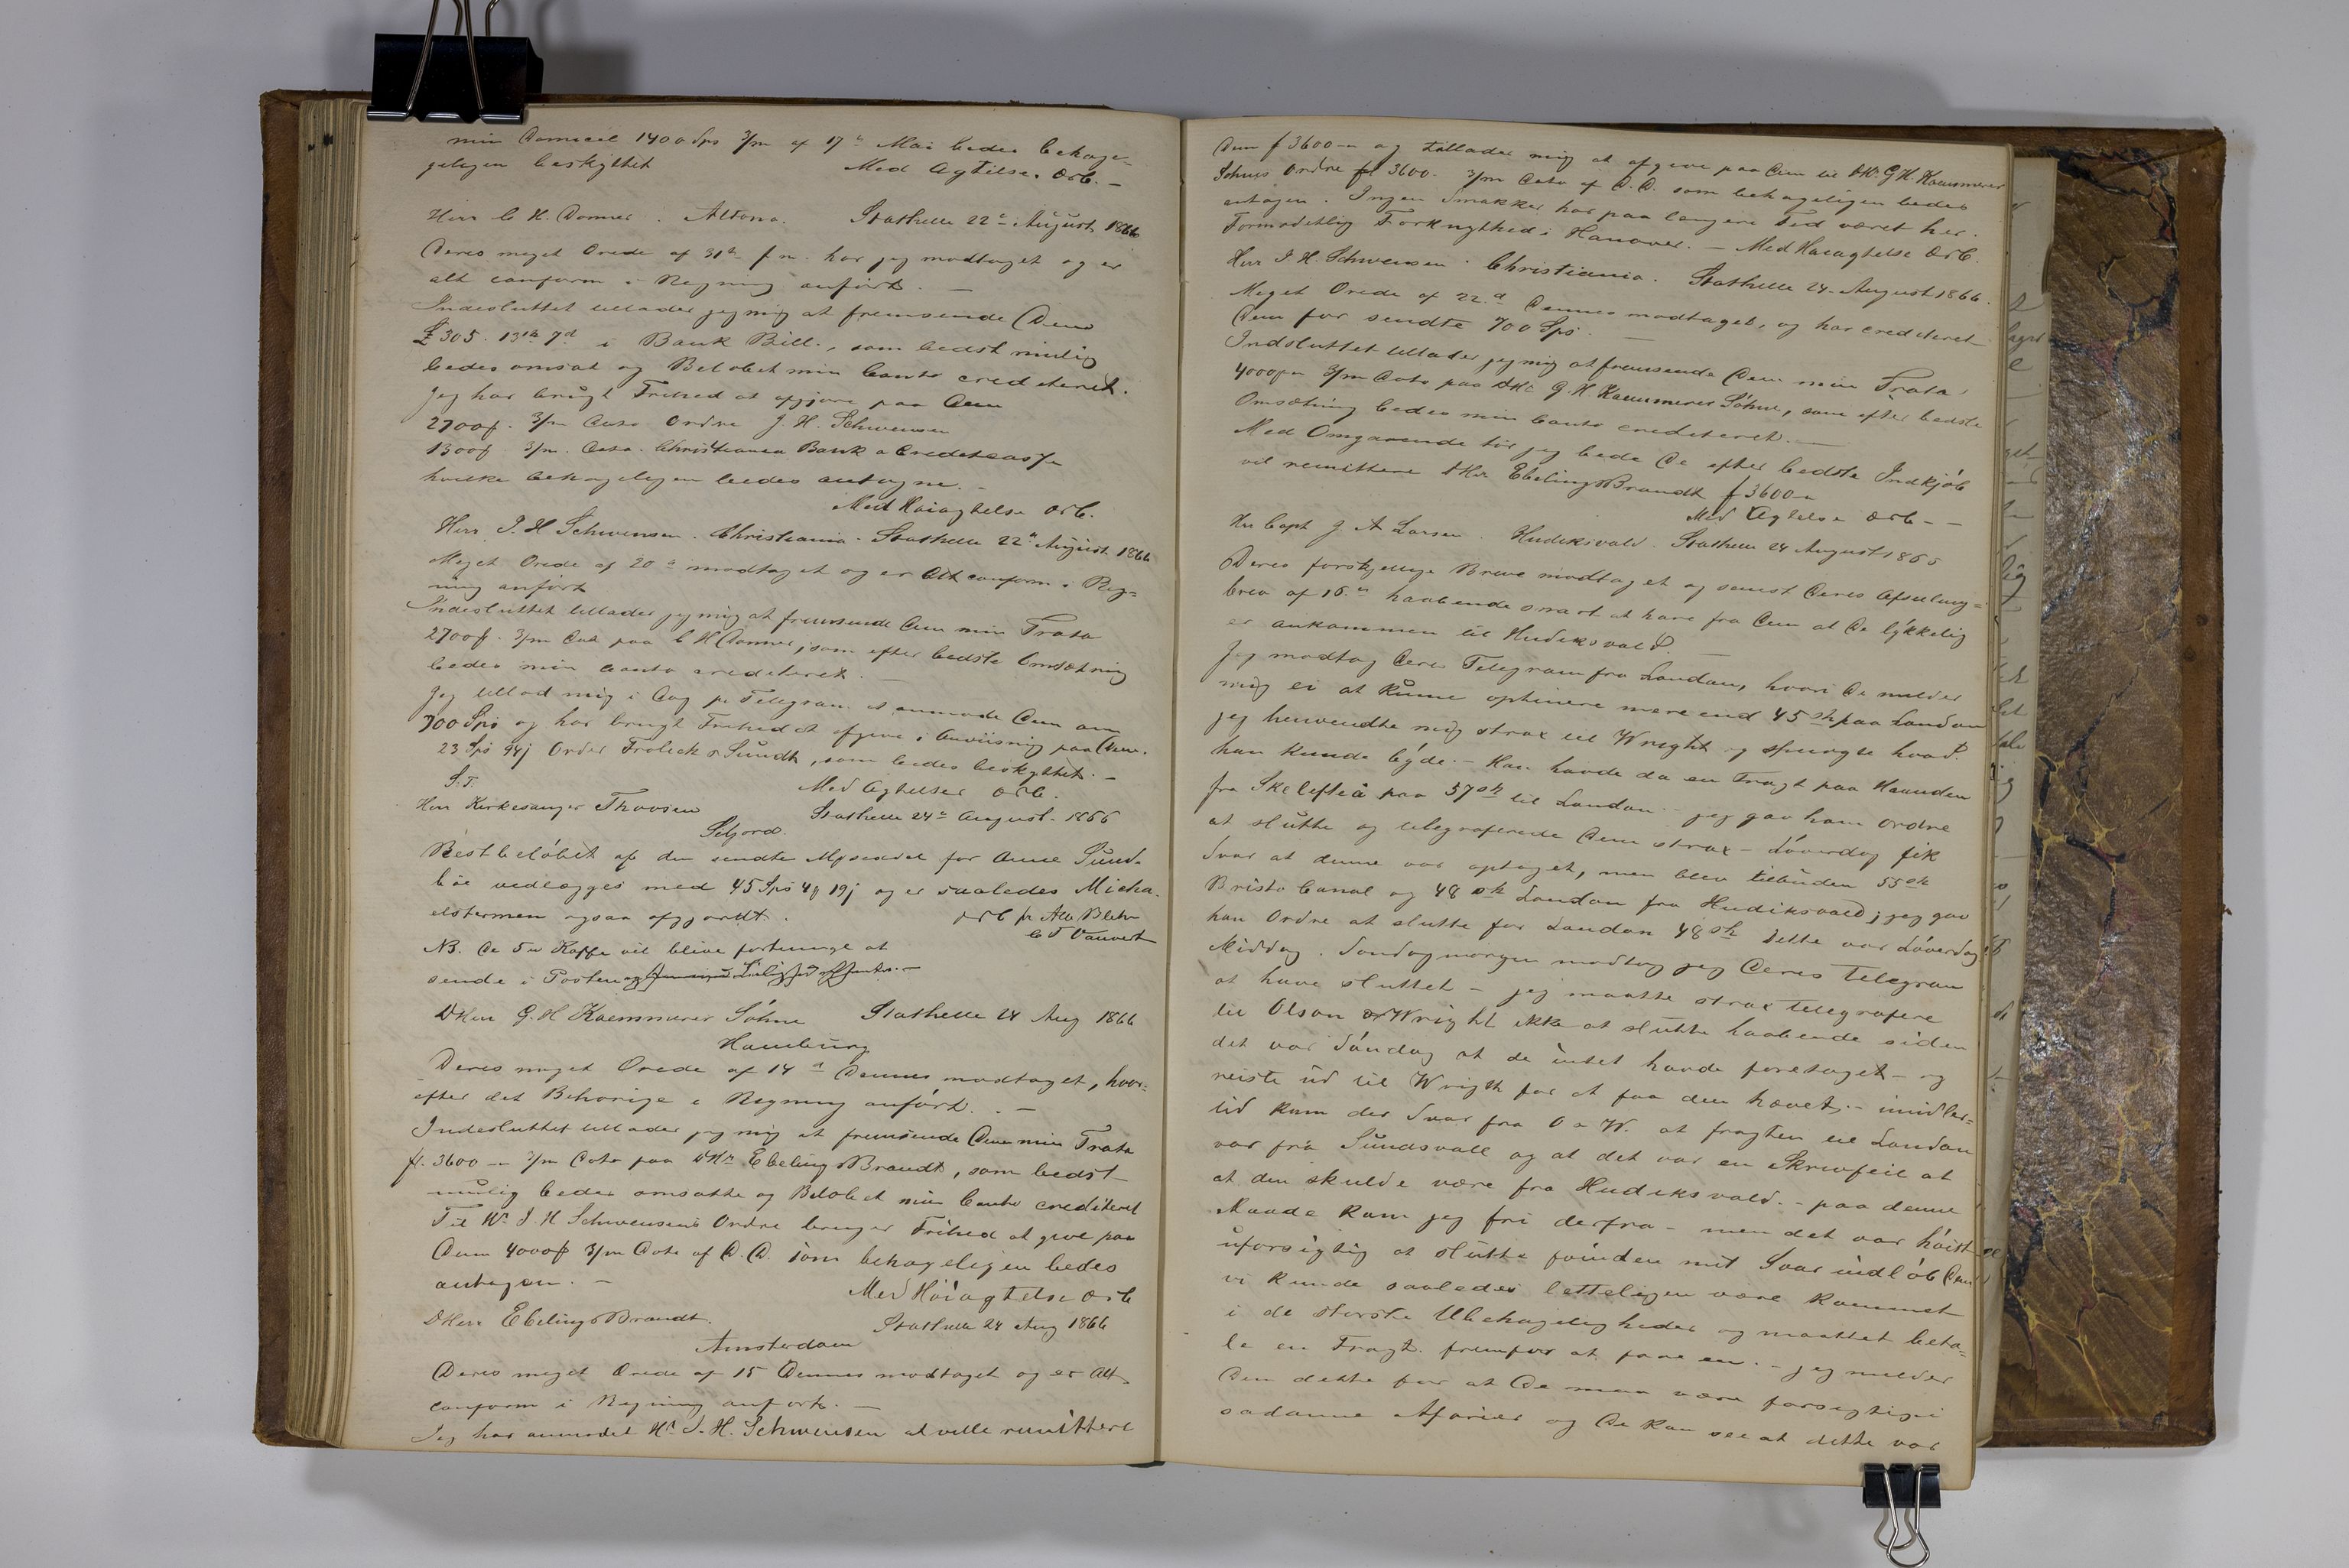 min Domicil 1400 Sps 3/m af 17de Mai bedes behage-
geligen beskyttet Med Agtelse. ærb. -
Herr C H. Donner. Altona. Stathelle 22de August 1866
Deres meget Ærede af 31te f. m. har jeg modtaget og er
alt conform i Regning anført. —
Indesluttet tillader jeg mig at fremsende Dem
£ 305. 13sh 7d i Bank Bill., som bedst mulig
bedes omsat og Beløbet min Conto crediteret.
Jeg har brugt Frihed at afgive paa Dem
2700 3/m Dato Ordre J. H. Schwensen
1300 3/m. Dato. Christiania Bank & Creditcasse
hvilke behageligen bedes antagne. -
Med Høiagtelse ærb.
Herr. J. H Schwensen. Christiania. Stathelle 22de August 1866
Meget Ærede af 20de modtaget og er Alt conform i Reg=
ning anført
Indesluttet tillader jeg mig at fremsende Dem min Trata
2700 3/m Dat paa C H Donner, som efter bedste Omsætning
bedes min Conto crediteret. —
Jeg tillod mig i Dag pr Telegram at anmode Dem om
700 Sps og har brugt Frihed at afgive i Anviisning paa Dem.
23 Sps 94 Ordre Frolich & Sundt, som bedes beskyttet. -
S.T. Med Agtelse ærb.
Herr Kirkesanger Thoresen Stathelle 24de August. 1866
Seljord.
Restbeløbet af den sendte for Anne Sund-
bøe vedlægges med 45 Sps 4 19 og er saaledes Micha-
elstermen ogsaa afgjordt. ærb pr Alb Blehr
C T Vauvert
NB. De 5 Kaffe vil blive fortunge at
sende i Posten
DHerr G. H Kaemmerer Söhne Stathelle 24 Aug 1866
Hamburg
Deres meget Ærede af 14de Dennes modtaget, hvor-
efter det Behørige i Regning anført. . —
Indesluttet tillader jeg mig at fremsende Dem min Trata
fl. 3600 — 3/m Dato paa DHr Ebeling & Brandt, som bedst
mulig bedes omsatte og Beløbet min Conto crediteret
Til Hr J. H Schwensens Ordre bruger Frihed at give paa
Dem 4000 3/m Dato af D. D. som behageligen bedes
antagen. — Med Høiagtelse ærb
DHerr Ebeling & Brandt. Stathelle 24 Aug 1866
Amsterdam
Deres meget Ærede af 15 Dennes modtaget og er Alt
conform i Regning anført. —
Jeg har anmodet Hr J. H. Schwensen at ville remittere
Dem f 3600 — og tillader mig at afgive paa Dem til DHr. G H. Kaemmerer
Söhnes Ordre fl 3600. 3/m Dato af D. D. som behageligen bedes
antagen. Ingen Smakker har paa længere Tid været her.
Formodetlig Forknythed i Hanover. — Med Høiagtelse ærb.
Herr J. H. Schwensen. Christiania. Stathelle 24. August 1866.
Meget Ærede af 22d Dennes modtaget, og har crediteret
Dem for sendte 700 Sps. —
Indsluttet tillader jeg mig at fremsende Dem min Trata
4000 3/m Dato paa DHr G. H Kaemmerer Söhne, som efter bedste
Omsætning bedes min Conto crediteret. —
Med Omgaaende tør jeg bede De efter bedste Indkjøb
vil remittere DHrr Ebeling & Brandt f 3600 —
Med Agtelse ærb — —
Hr Capt J A Larsen. Hudiksvald. Stathelle 24 August 1866
Deres forskjellige Breve modtaget og senest Deres Afseiling=
brev af 16. haabende snart at høre fra Dem at De lykkelig
er ankommen til Hudiksvald. —
Jeg modtog Deres Telegram fra London, hvori De melder
mig ei at kunne optinere mere end 45 sh paa London
jeg henvendte mig strax til Wright og spurgte hvad
han kunde byde. — Han havde da en Fragt paa Haanden
fra Skelefteå paa 57 sh til London — jeg gav ham Ordre
at slutte og telegraferede Dem strax — Løverdag fik
Svar at denne var optaget, men blev tilbuden 55 sh
Bristo Canal og 48 sh London fra Hudiksvald; jeg gav
han Ordre at slutte for London 48 sh dette var Løverdag
Middag. Søndagmorgen modtog jeg Deres Telegram
at have sluttet — jeg maatte strax telegrafere
til Olson & Wright ikke at slutte haabende siden
det var Søndag at de intet havde foretaget — og
reiste ud til Wrigth for at faa den hævet. — imidler-
tid kom der Svar fra O & W. at fragten til London
var fra Sundsvall og at det var en Skrivfeil at
at den skulde være fra Hudiksvald. — paa denne
Maade kom jeg fri derfra — men det var høist
uforsigtig at slutte førinden mit Svar indløb Dem
vi kunde saaledes letteligen være kommet
i de største Ubehageligheder og maattet beta=
le en Fragt. fremfor at faae en. — jeg melder
Dem dette for at De maa være forsigtig i
sadanne Afærer og De kan see at dette var